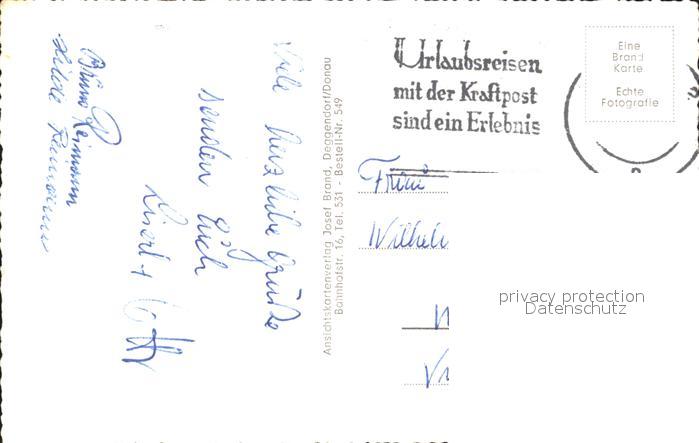 Viele herzliche Grüße
senden Euch
Bruno Reimann
Hilde Reimann
Ansichtskartenverlag Josef Brand, Deggendorf/Donau
Bahnhofstr. 16, Tel. 531 - Bestell-Nr. 549
Urlaubsreisen
mit der Kraftpost
sind ein Erlebnis
Eine
Brand
Karte
Echte
Fotografie
Wilhel
privacy protection
Datenschutz